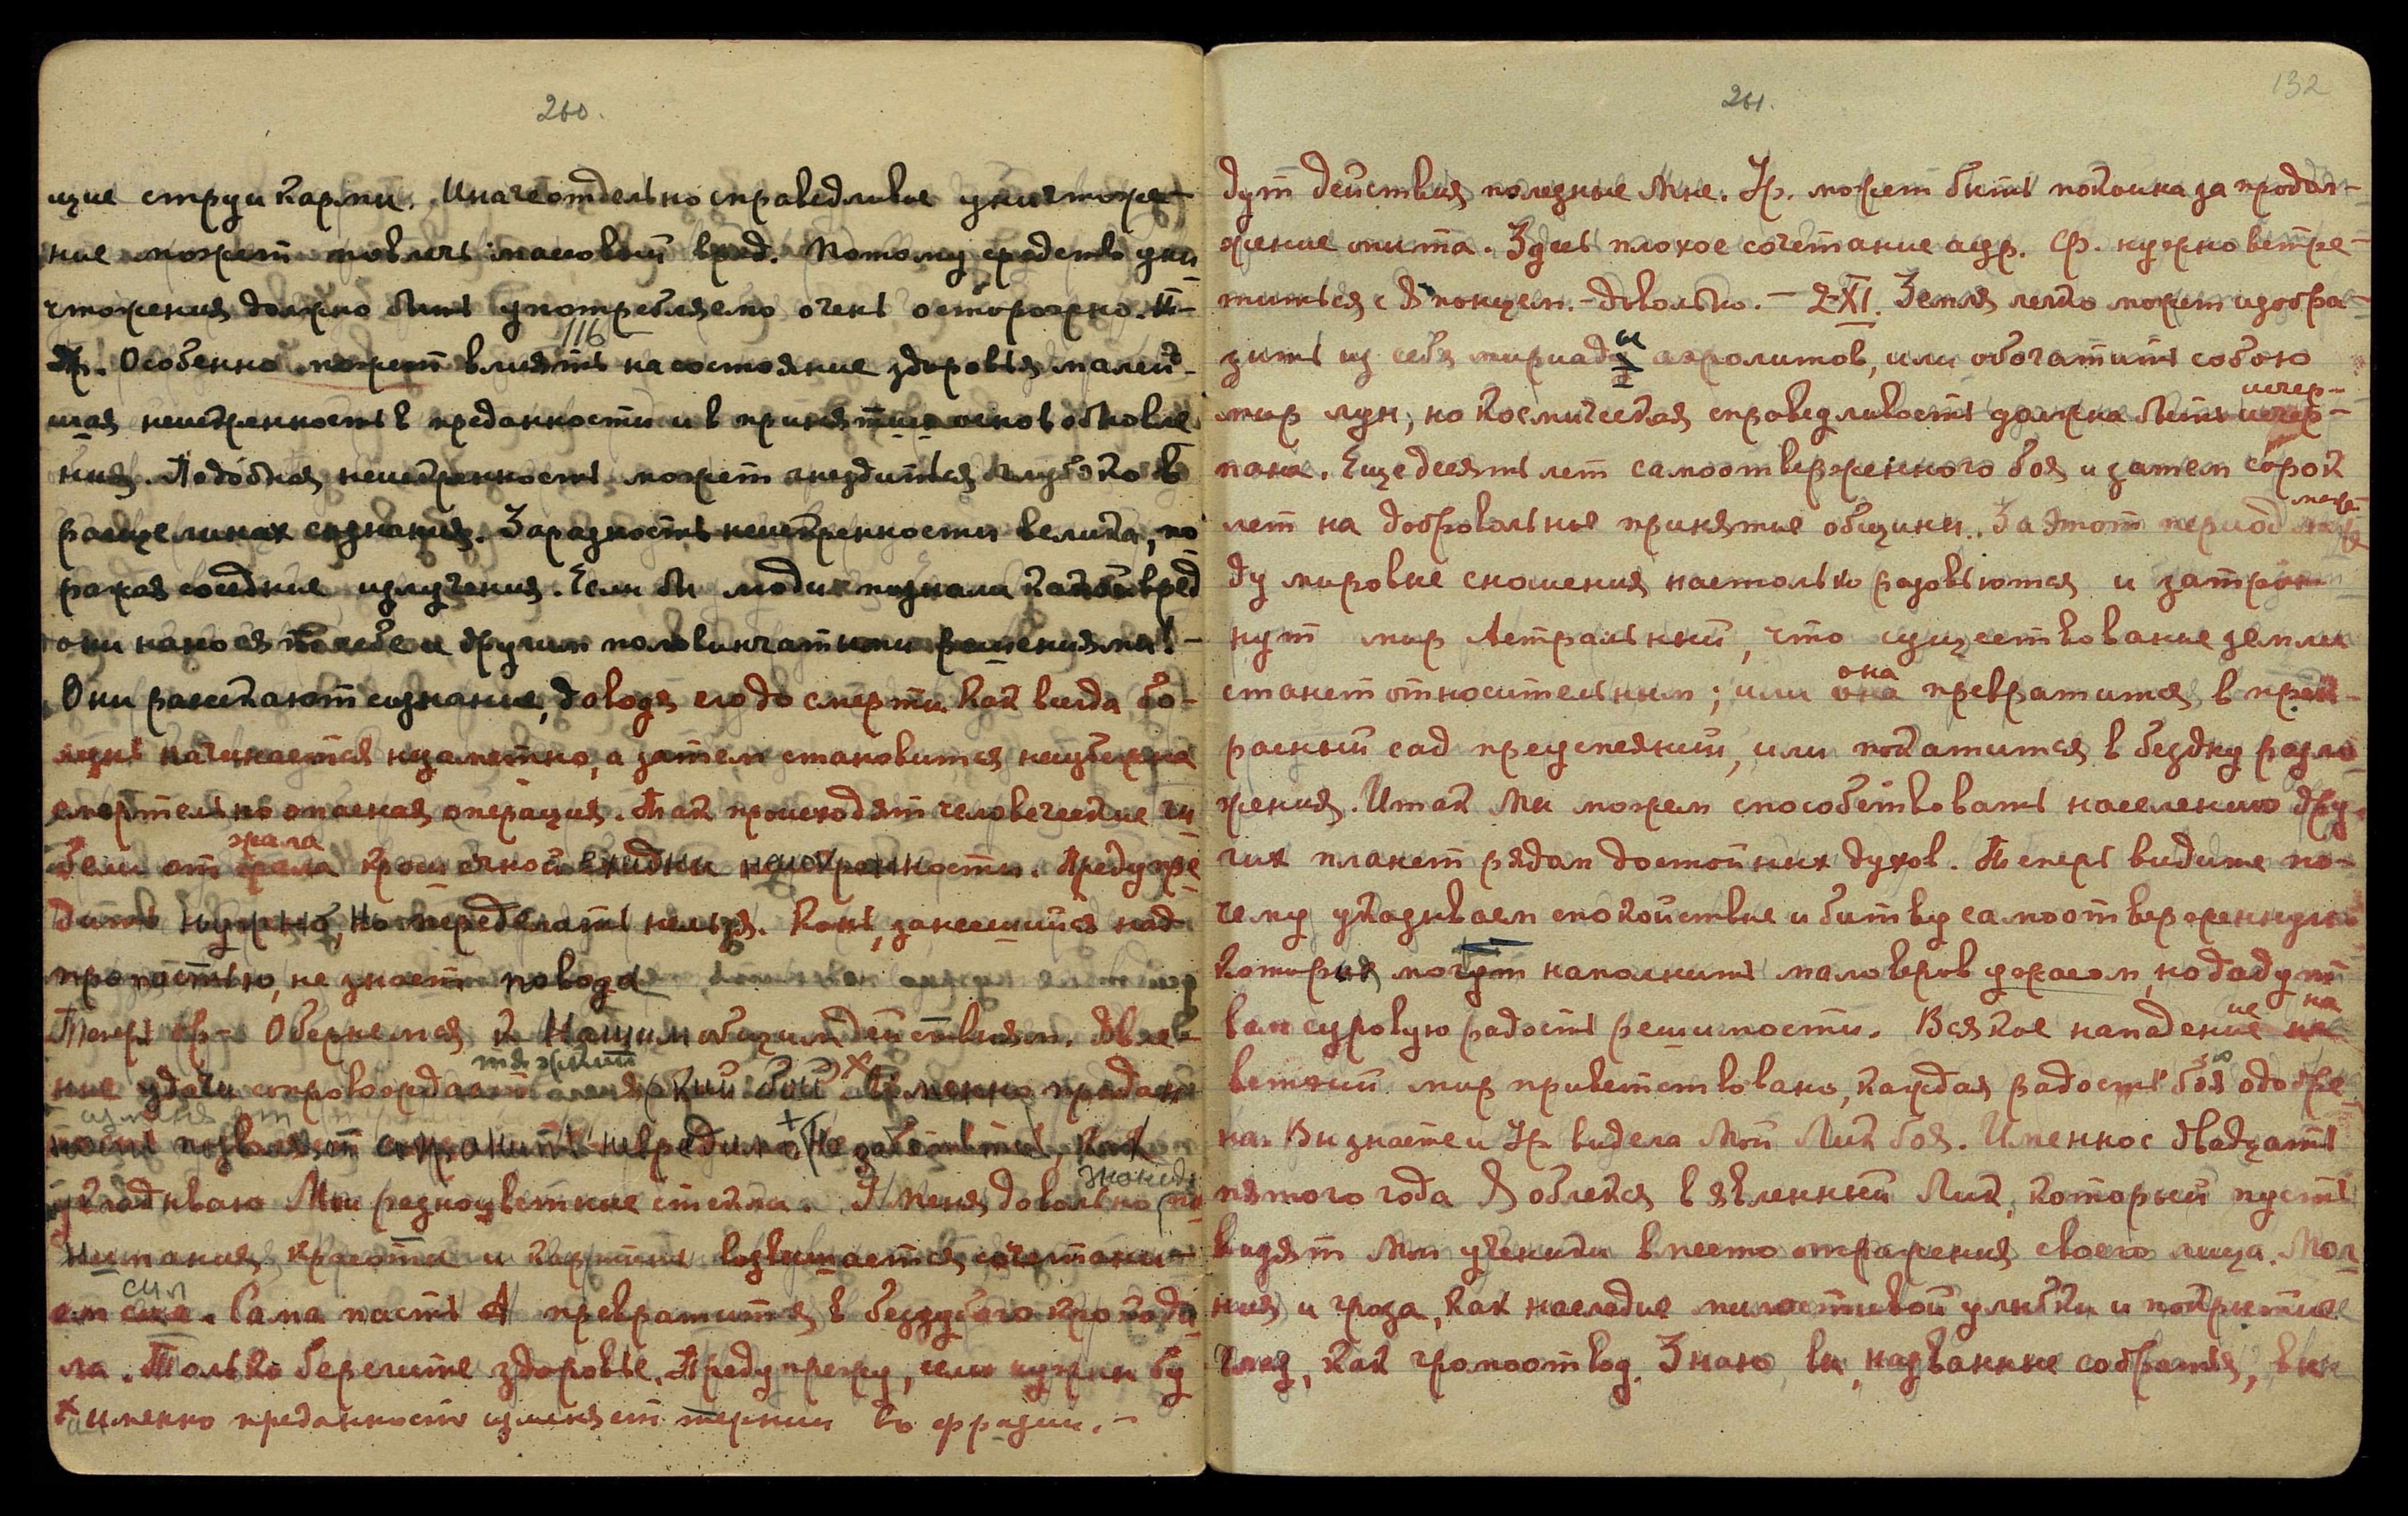 260.
щие струи кармы. Иначе отдельно справедливое уничтоже-
ние может повлечь массовый вред. Потому средство уни
чтожения должно быть употребляемо очень осторожно. –
116
Ур. Особенно может влиять на состояние здоровья малей-
шая неискренность в преданности и в принятии основ обновле
ния. Подобная неискренность может гнездиться глубоко в
расщелинах сознания. Заразность неискренности велика, по
ражая соседние излучения. Если бы люди познали какой вред
они наносят себе и другим половинчатыми решениями! –
Они рассекают сознание, доводя его до смерти. Как всегда бо-
лезнь начинается незаметно, а затем становится неизбежна
смертельно опасная операция. Так происходят человеческие ги
жала
бели от жала крошечной ехидны неискренности. Предупре
дить нужно, но переделать нельзя. Конь, занесшийся над
пропастью, не знает повода
Теперь ср– Обернемся к Нашим общим действиям. Явле
тяжкий
ние удачи сопровождает тяжкий бой ×. Именно предан
изменяет
ность позволяет сохранить невредимо + (Не забывайте, как
знаки
укладываю Мои разноцветные стекла. У меня довольно по
нитания красоты и картины возвышается сочетани-
сил
ем сил. Сама пасть А превратится в беззубого крокоди
ла. Только берегите здоровье. Предупрежу, если нужны бу
× именно преданность изменяет термин Ев фразии. –
261.
132
дут действия полезные Мне. Ур. может быть покойна за продол-
жение опыта. Здесь плохое сочетание аур. Ср. нужно встре-
титься с Японцем. – довольно. – 2-XI. Земля легко может изобра-
ы
зить из себя мириады аэролитов, или обогатить собою
исчер-
мир лун, но космическая справедливость должна быть исчер-
пана. Еще десять лет самоотверженного боя и затем сорок
меж
лет на добровольное принятие общины. За этот период меж
ду мировые сношения настолько разовьются и затро
нут мир Астральный, что существование земли
она
станет относительным; или она превратится в прек-
расный сад преуспеяний, или покатится в бездну разло
жения. Итак Мы можем способствовать населению дру-
гих планет рядом достойных духов. Теперь видите по-
чему указываем спокойствие и битву самоотверженную
которыя могут наполнить маловеров ужасом, но дадут
не на
вам суровую радость решимости. Всякое нападение на
ветхий мир приветствовано, каждая радость боя одобре
на. Вы знаете и Ур. видела Мой Лик боя. Именно с двадцать
пятого года Я облекся в явленный Лик, который пусть
видят Мои ученики вместо отражения своего лица. Мол
ния и гроза, как наследие милостивой улыбки и покрытие
глаз, как громоотвод. Знаю, вы, названные собратья, вы